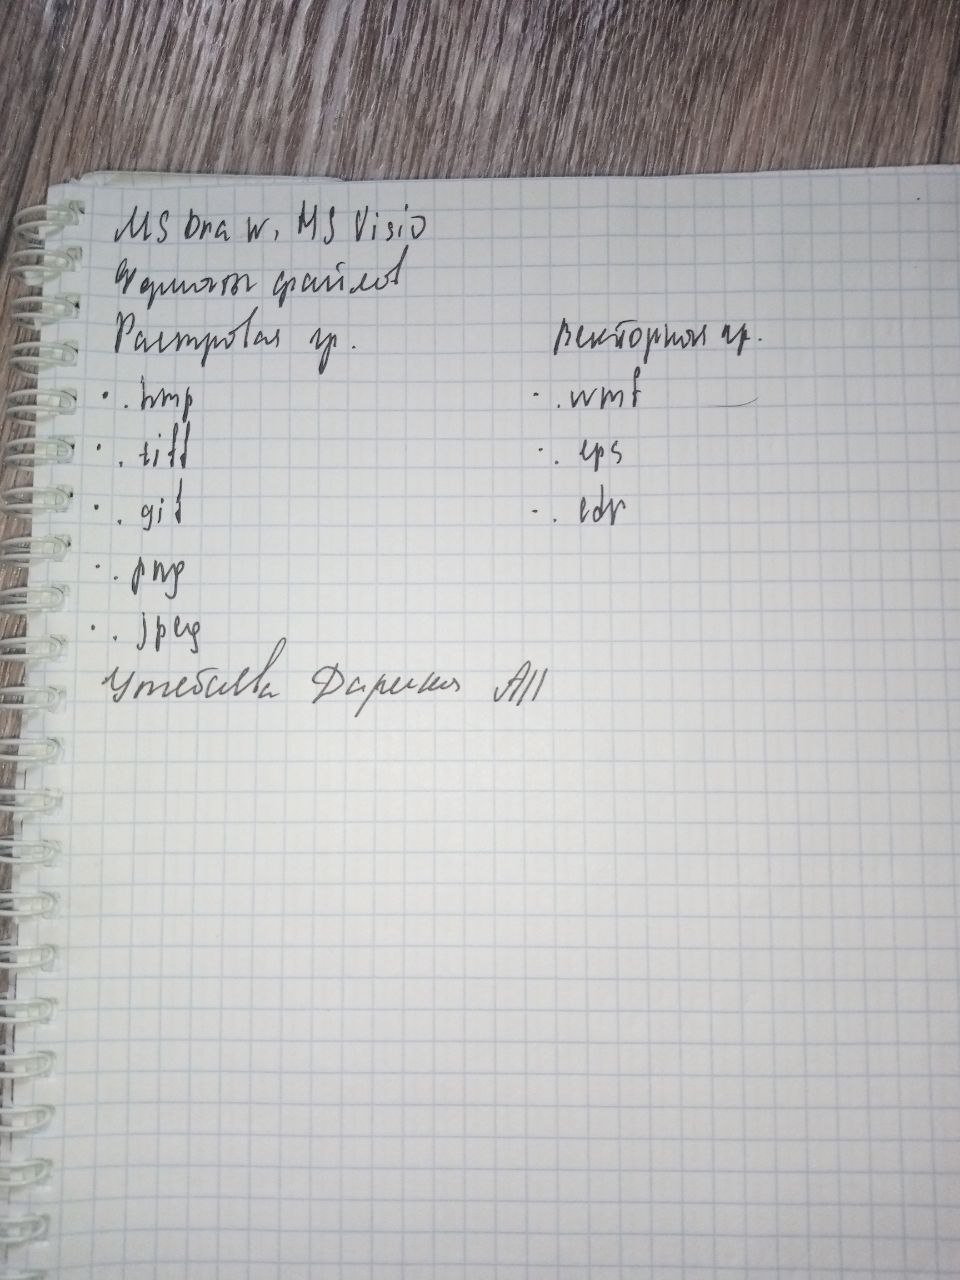 MS Draw, MS Visio
Форматы файлов
Растровая гр. Векторная гр.
· .bmp · .wmf
· .tiff · .eps
· .gif · .cdr
· .png
· .jpeg
Утебалева Дарина АП